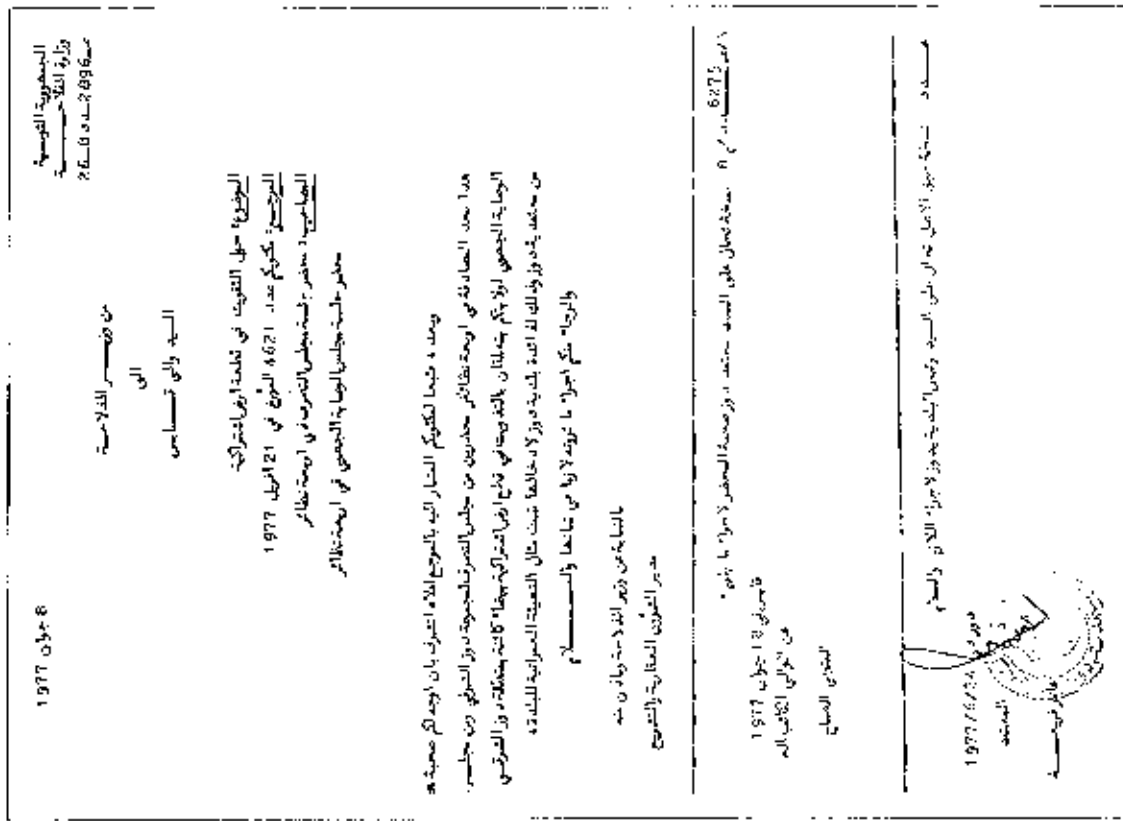 الجمهورية التونسية
وزارة الفلاحة
8 جوان 1977
من وزير الفلاحة
الى
السيد والي قابس
الموضوع: حول التفويت في قطعة ارض اشتراكية
المرجع: مكتوبكم عدد 4621 المؤرخ في 21 افريل 1977
المصاحيب: محضر جلسة مجلس التصرف في اربعة نظائر
محضر جلسة مجلس الوصاية الجهوي في اربعة نظائر
وبعد، فتبعا لمكتوبكم المشار اليه بالمرجع اعلاه اتشرف بان اوجه لكم صحبة
هذا بعد المصادقة في اربعة نظائر محضرين من مجلس التصرف لمجموعة دوز الشرقي ومن مجلس
الوصاية الجهوي لولايتكم يتعلقان بالتفويت في قطع ارض اشتراكية بيضاء كائنة بمنطقة دوز الشرقي
من معتمدية دوز وذلك لفائدة بلدية دوز لادخالها تحت مثال التهيئة العمرانية للبلدة
والرجاء منكم اجراء ما ترونه لازما في شانها والسلام
بالنيابة عن وزير الفلاحة وباذن منه
مدير الشؤون العقارية والتشريع
6275
نسخة تحال على السيد معتمد دوز صحبة المحضر لاجراء ما يلزم
قابس في 18 جوان 1977
عن الوالي الكاتب العام
نسخة طبق الاصل تحال على السيد رئيس البلدية بدوز لاجراء اللازم والسلام
دوز في 1977/6/24
المعتمد